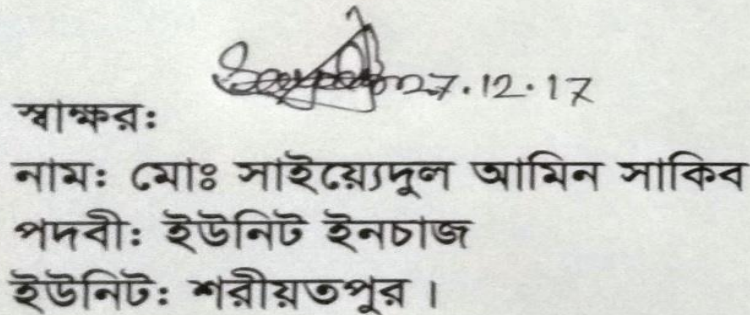 27.12.17
স্বাক্ষর:
নাম: মোঃ সাইয়্যেদুল আমিন সাকিব
পদবী: ইউনিট ইনচাজ
ইউনিট: শরীয়তপুর ।